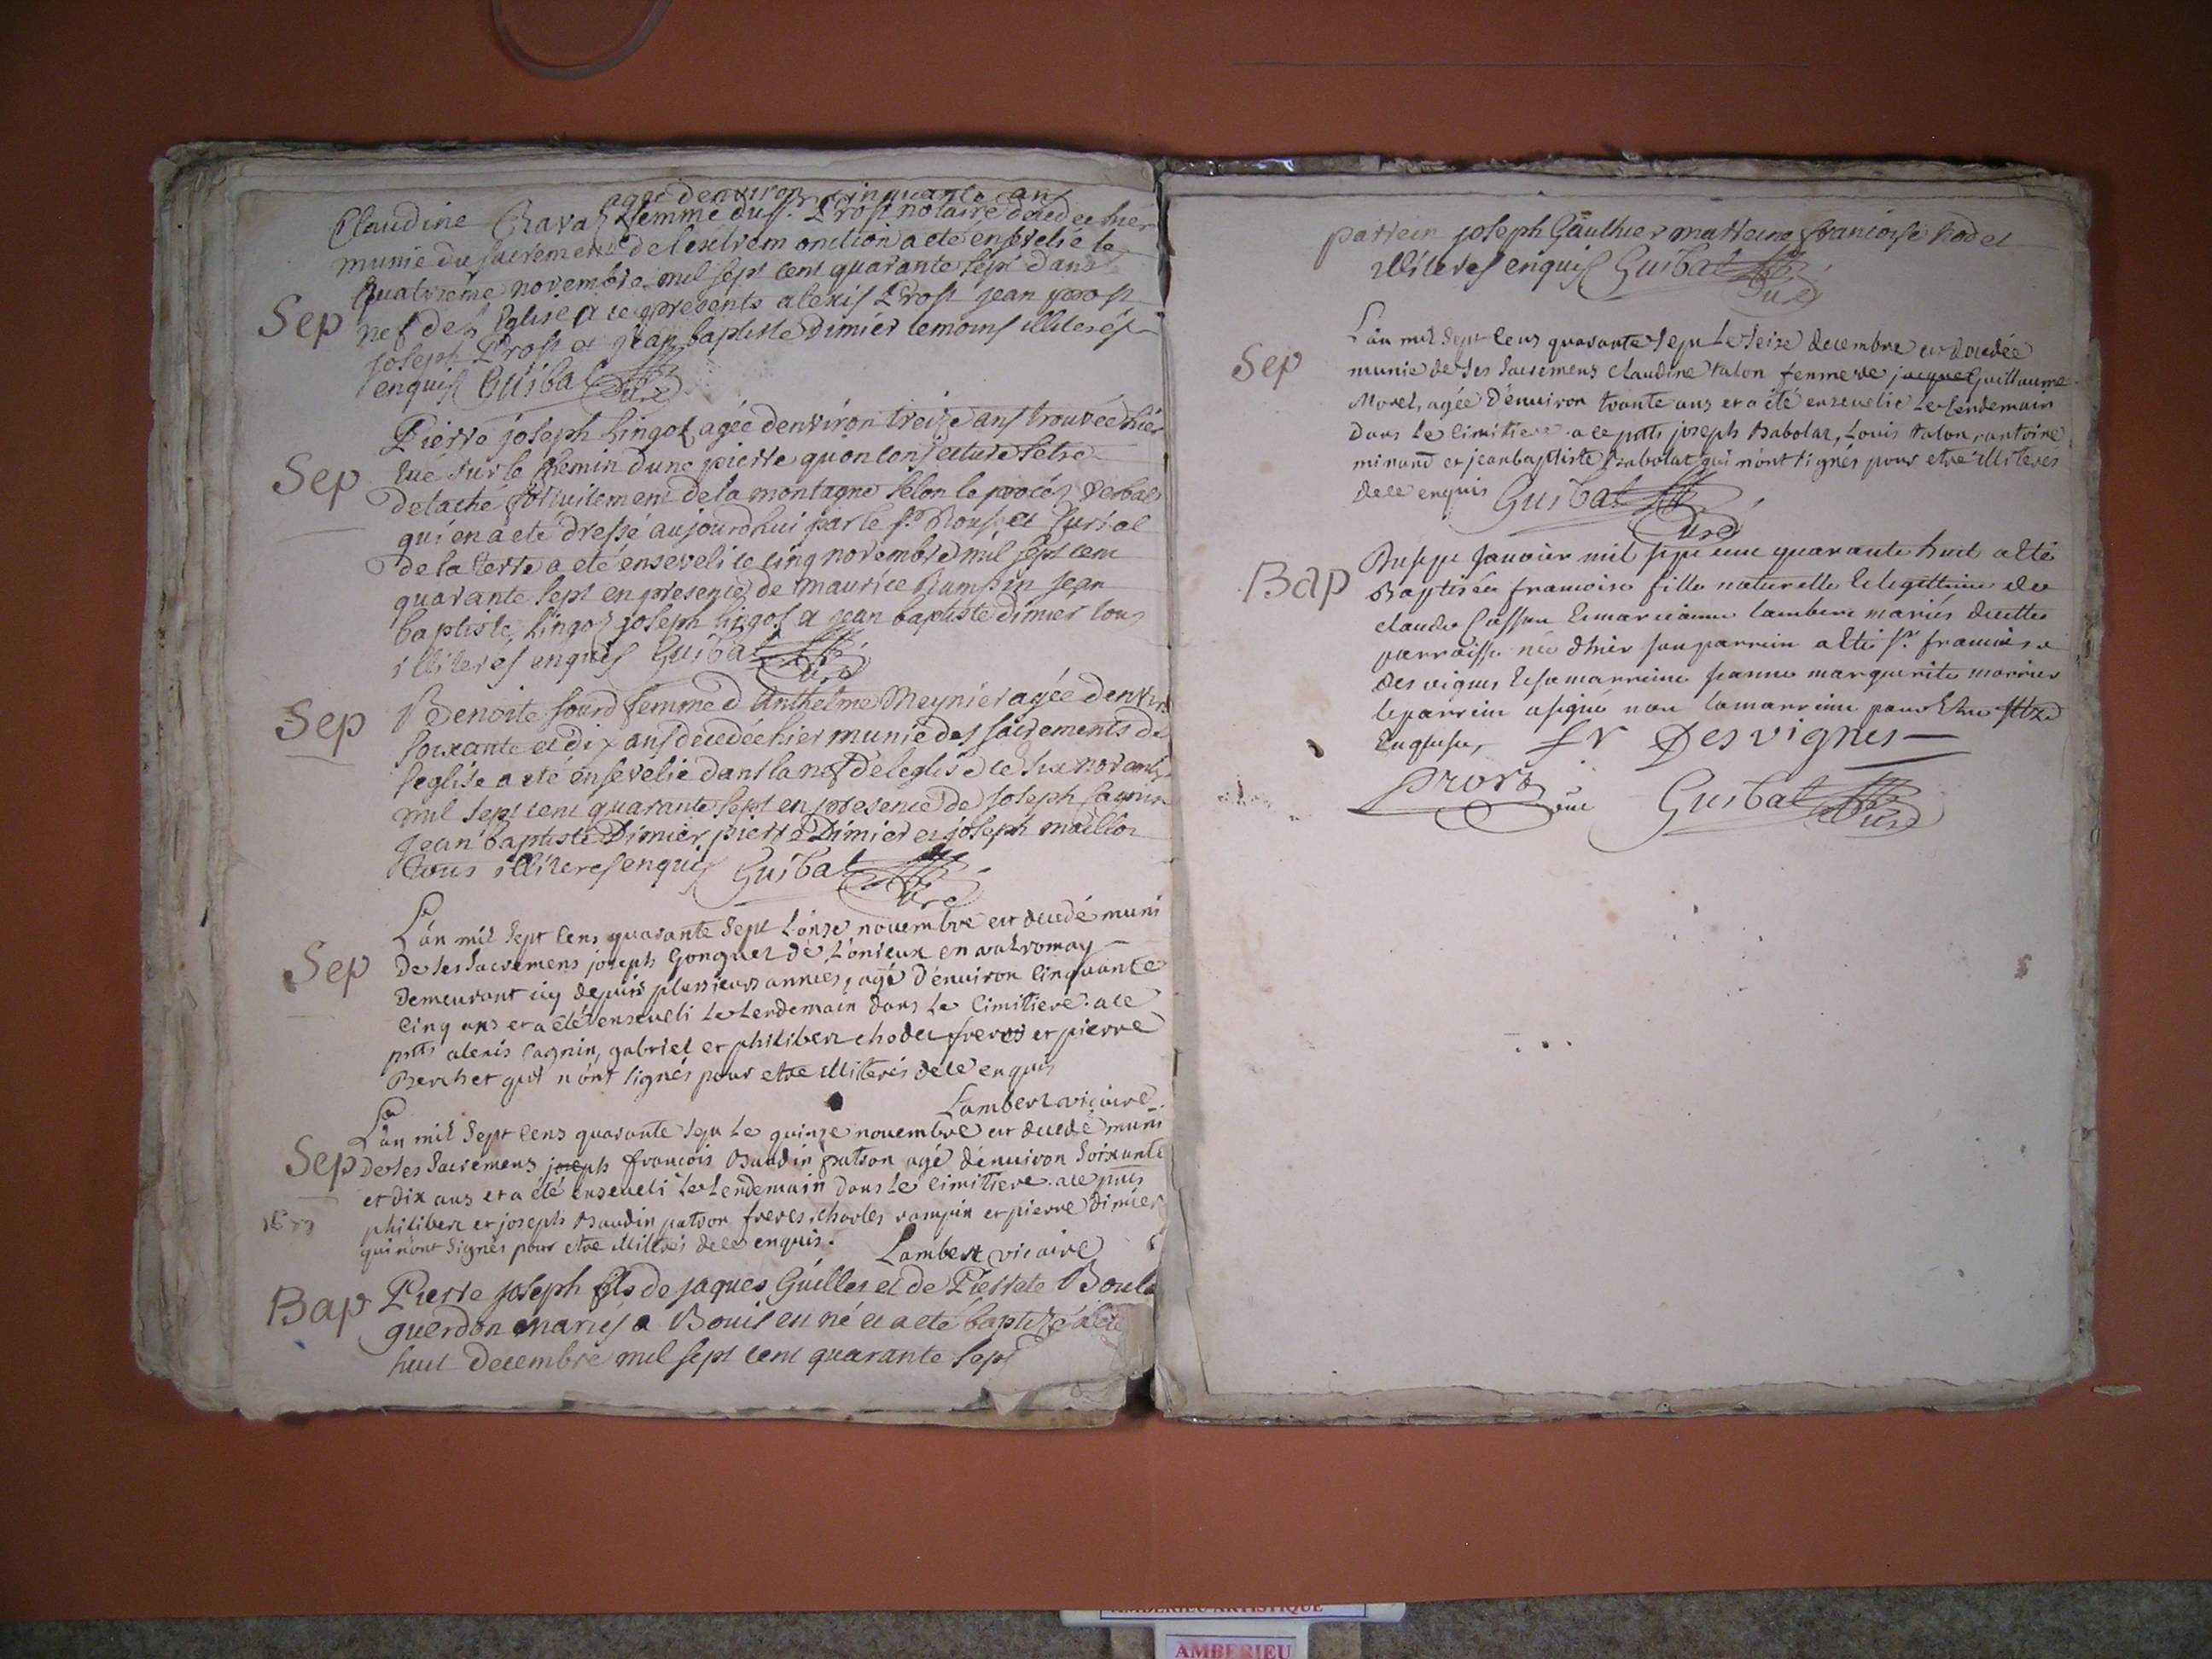 agée denviron cinquante ans
Claudine Chava femme du sr. Prost notaire decedee hier
munie du sacrement de lextrem onction a eté ensevelie le
quatrieme novembre mil sept cent quarante sept dans
Sep nef de l Eglise a ce presents alexis Prost jean prost
joseph Prost et jean baptiste Dimier temoins illiterés
enquis Guibal Curé
Pierre joseph Lingot agée denviron treize ans trouvée hier
Sep tué sur le chemin dune pierre quon conjecture setre
detaché fortuitement de la montagne selon le procés verbal
qui en a eté dressé aujourdhui par le sr. et Curial
de la terre a eté enseveli le cinq novembre mil sept cent
quarante sept en presence de maurice Rampin jean
baptiste Lingot joseph lingot et jean baptiste dimier tous
illiterés enquis Guibal Curé
Sep Benoite sourd femme d Anthelme Meynier agée denviron
soixante et dix ans decedée hier munie des sacrements de
leglise a eté ensevelie dans la nef de leglise le six novembre
mil sept cent quarante sept en presence de joseph Cagnin
jean baptiste Dimier, pierre Dimier et joseph
tous illiteres enquis Guibal Curé
L'an mil sept cens quarante sept L'onze novembre est decedé muni
Sep de ses sacremens joseph Gonguet de Lonieux en valromay
demeurant icy depuis plusieurs années, agé d'environ cinquante
cinq ans et a eté enseveli le lendemain dans le cimitiere. a ce
pnts alexis Cagnin, gabriel et philibert chodet freres et pierre
Berchet qui n'ont signés pour etre illiterés de ce enquis
Lambert vicaire.
L'an mil sept cens quarante sept le quinze novembre est decedé muni
Sep de ses sacremens joseph françois Baudin patron agé d'environ soixante
et dix ans et a été enseveli le lendemain dans le cimitiere. a ce pnts
philibert et joseph Baudin patron freres, charles rampin et pierre Dimier
qui n'ont signés pour etre illiterés de ce enquis. Lambert vicaire
Bap Pierre joseph fils de jaques Guilles et de Pierrete Boula
guerdon mariés a Bouis est né et a eté baptizé
huit decembre mil sept cent quarante sept
parrein joseph Gaulthier marreine francoise
illiteres enquis Guibal Curé
L'an mil sept cens quarante sept le seize decembre est decedée
Sep munie de ses sacremens Claudine talon femme de jacques Guillaume
Morel, agée d'environ trante ans et a été ensevelie le lendemain
dans le cimitiere. a ce pnts joseph Babolat, Louis talon, antoine
minand et jeanbaptiste Babolat qui n'ont signés pour etre illiterés
de ce enquis Guibal Curé
Du sept janvier mil sept cent quarante huit a eté
Bap Baptisée francoise fille naturelle et legittime de
claude et marianne lambert mariés de cette
parroisse née d'hier son parrein a eté sr. francois
des vignes et sa marreine jeanne marguerite morrier
le parrein a signé non la marreine pour etre
Enquise, fr Desvignes
Guibal Curé
AMBERIEU ARTISTIQUE
AMBERIEU